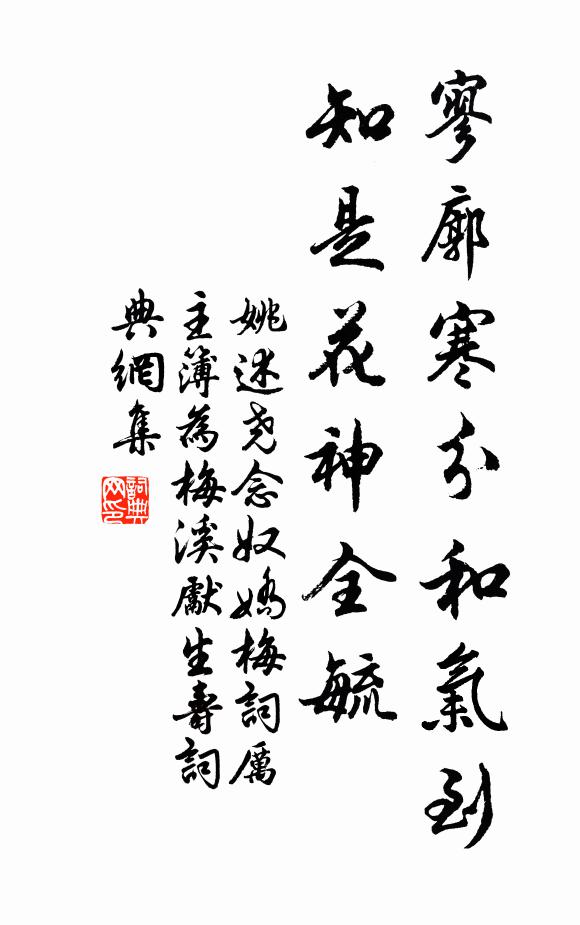 寥廓寒分和氣到
知是花神全毓
姚述堯念奴嬌梅詞厲
主簿為梅溪獻生壽詞
典網集
詞典網印